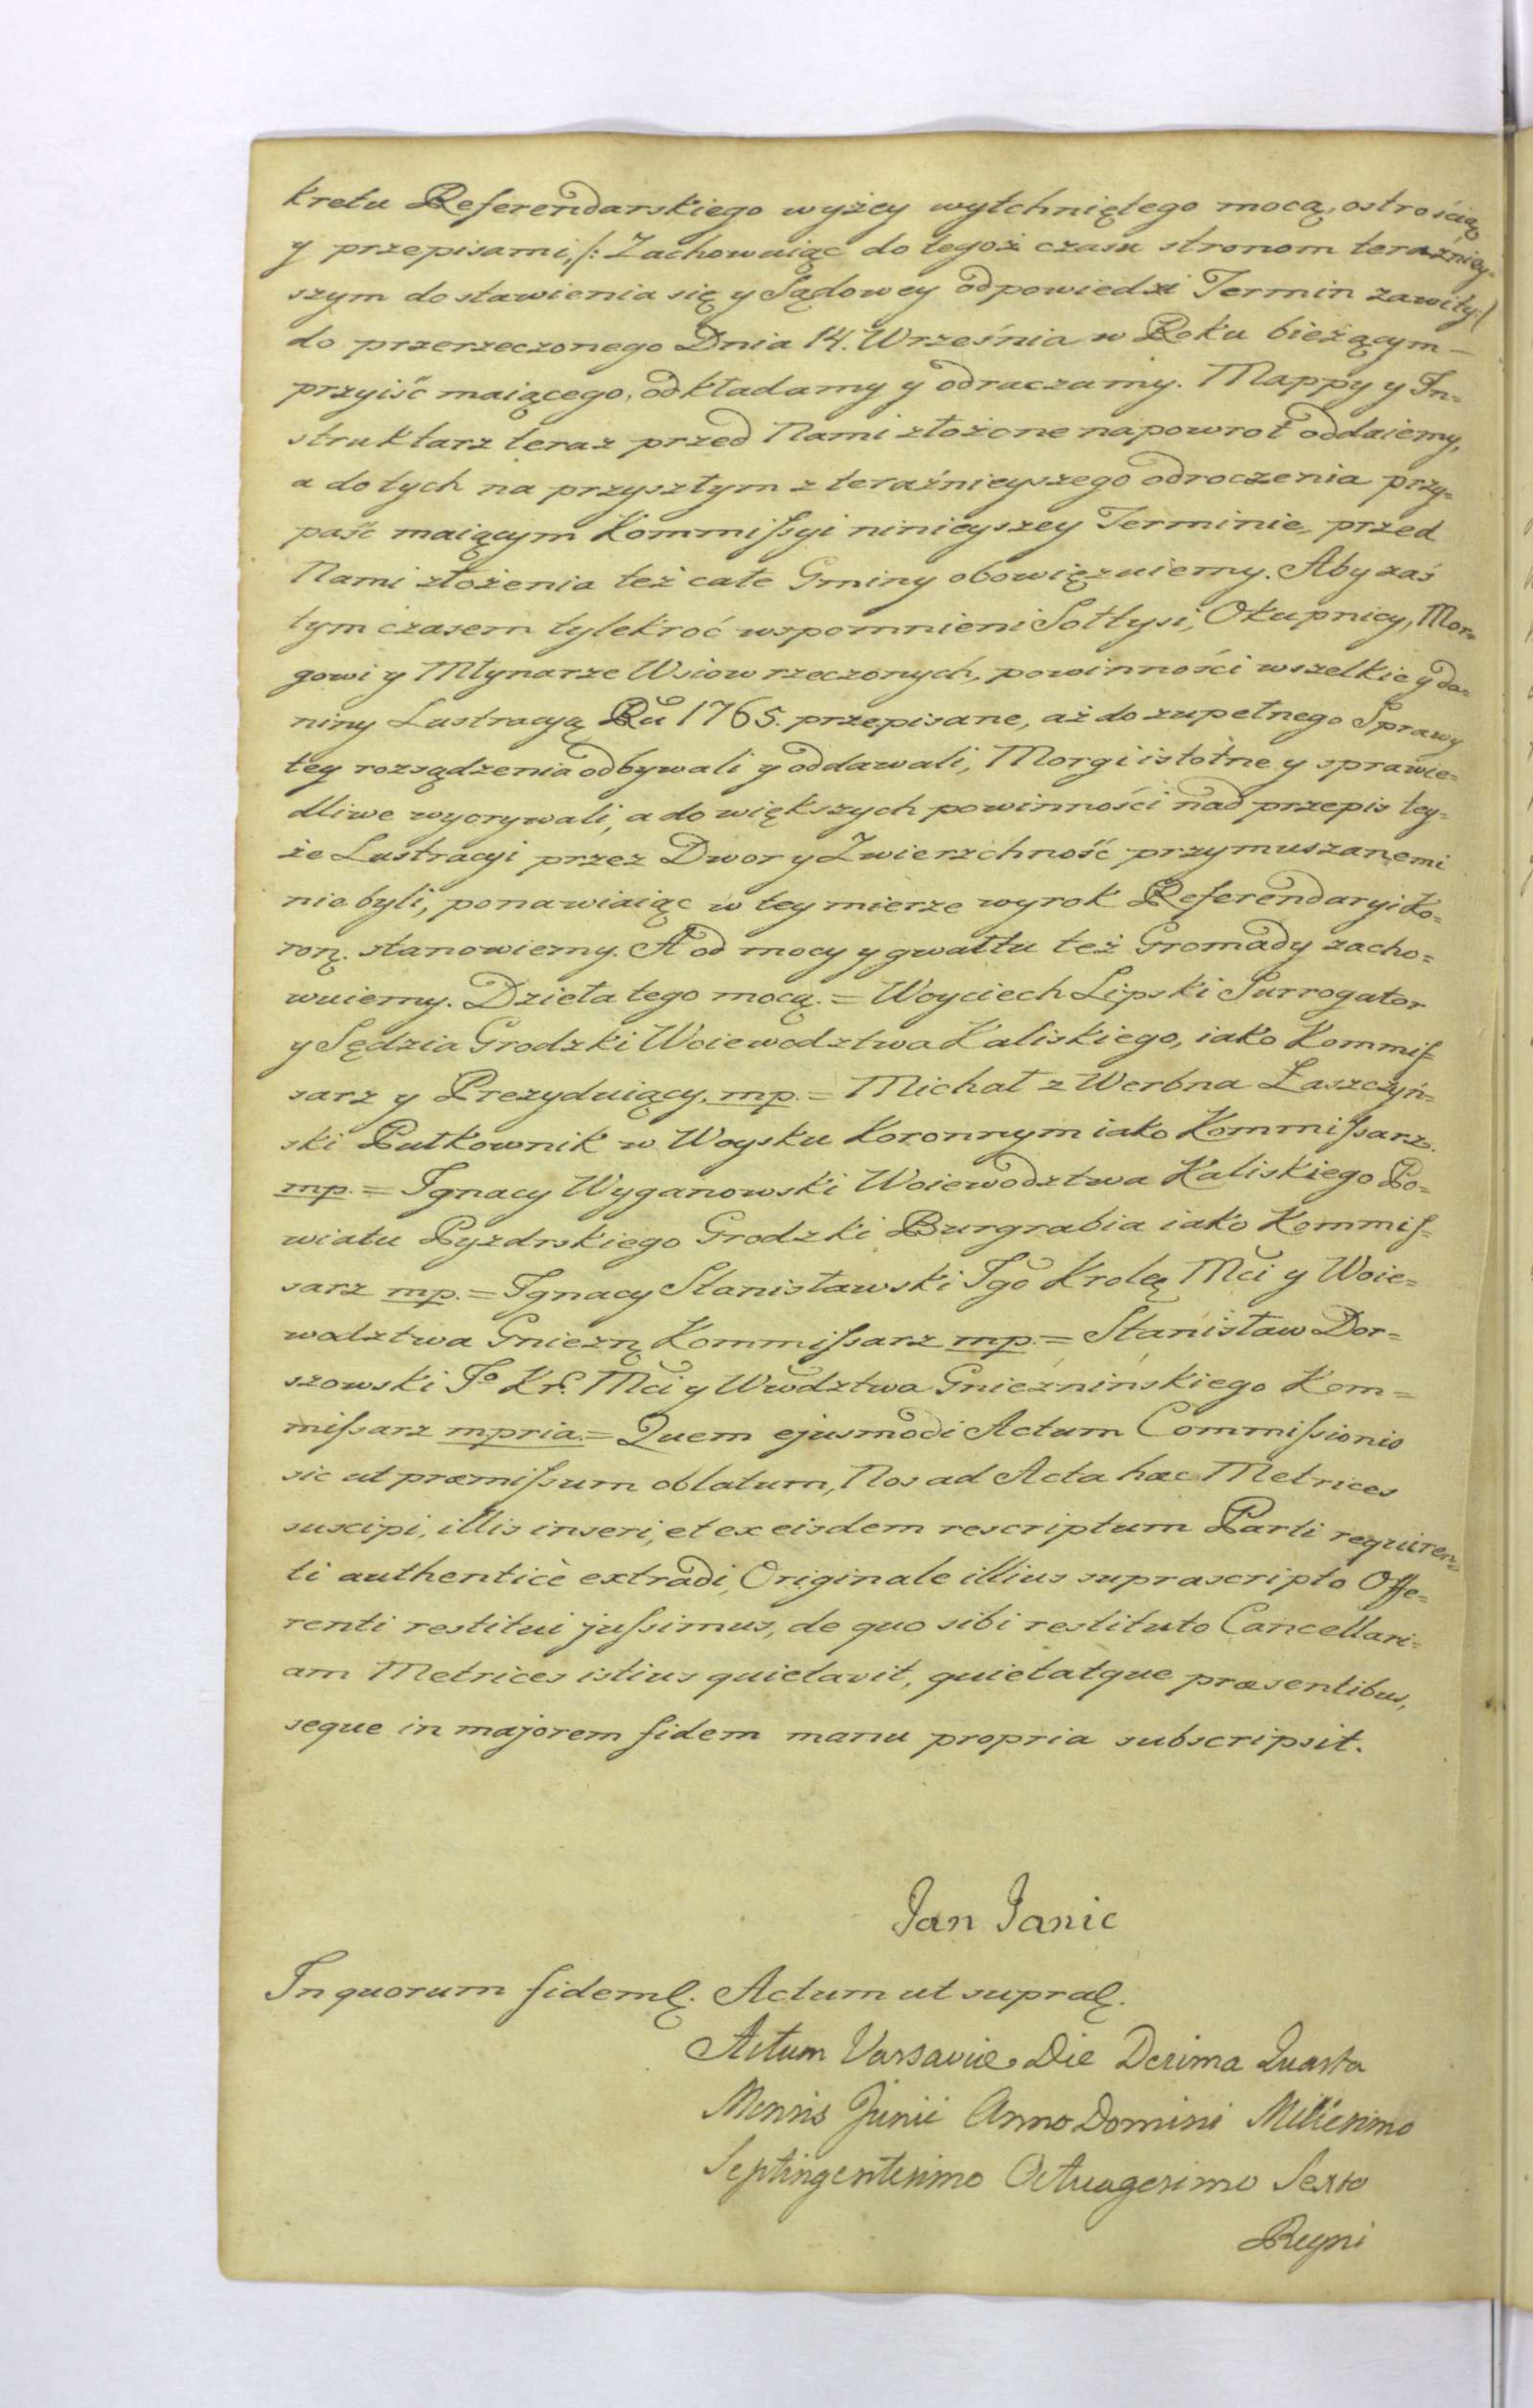 kretu Referendarskiego wyżey wytchniętego mocą, ostrością
y przepisami, /: Zachowuiąc do tegoż czasu stronom teraźniey=
szym do stawienia się y Sądowey odpowiedzi Termin zawity :/
do przerzeczonego Dnia 14. Września w Roku bieżącym –
przyiść maiącego, odkładamy y odraczamy. Mappy y In=
struktarz teraz przed Nami złożone napowrot oddaiemy,
a do tych na przyszłym z teraźnieyszego odroczenia przy=
paść maiącym Kommiſsyi ninieyszey Terminie, przed
Nami złożenia też całe Gminy obowięzuiemy. Aby zaś
tym czasem tylekroć wspomnieni Sołtysi, Okupnicy, Mor=
gowi y Młynarze Wsiow rzeczonych, powinności wszelkie y da=
niny Lustracyą Ru 1765. przepisane, aż do zupełnego Sprawy
tey rozsądzenia odbywali y oddawali, Morgi istotne y sprawie=
dliwe wyorywali, a do większych powinności nad przepis tey=
że Lustracyi przez Dwor y Zwierzchność przymuszanemi
nie byli, ponawiaiąc w tey mierze wyrok Referendaryi Ko=
ronę. stanowiemy. A od mocy y gwałtu też Gromady zacho=
wuiemy. Dzieła tego mocą. = Woyciech Lipski Surrogator
y Sędzia Grodzki Woiewodztwa Kaliskiego, iako Kommiſ=
sarz y Prezyduiący. mp. = Michał z Werbna Łaszczyń=
ski Pułkownik w Woysku Koronnym iako Kommiſsarz.
mp. = Ignacy Wyganowski Woiewodztwa Kaliskiego Po=
wiatu Pyzdrskiego Grodzki Burgrabia iako Kommiſ=
sarz mp. = Ignacy Stanisławski Jgo Krolę Mci y Woie=
wodztwa Gnieznę Kommiſsarz mp. = Stanisław Dor=
szowski Jo Kr. Mci y Wwdztwa Gnieznińskiego Kom=
miſsarz mpria. = Quem ejusmodi Actum Commiſsionis
sic ut præmiſsum oblatum, Nos ad Acta hæc Metrices
suscipi, illis inseri, et ex eisdem rescriptum Parti requiren=
ti authenticè extradi, Originale illius suprascripto Offe=
renti restitui juſsimus, de quo sibi restituto Cancellari=
am Metrices istius quietavit, quietatque præsentibus,
seque in majorem fidem manu propria subscripsit.
Jan Janic
In quorum fidem &. Actum ut supra &.
Actum Varsaviæ Die Decima Quarta
Mensis Junii Anno Domini Millesimo
Septingentesimo Octuagesimo Sexto
Regni